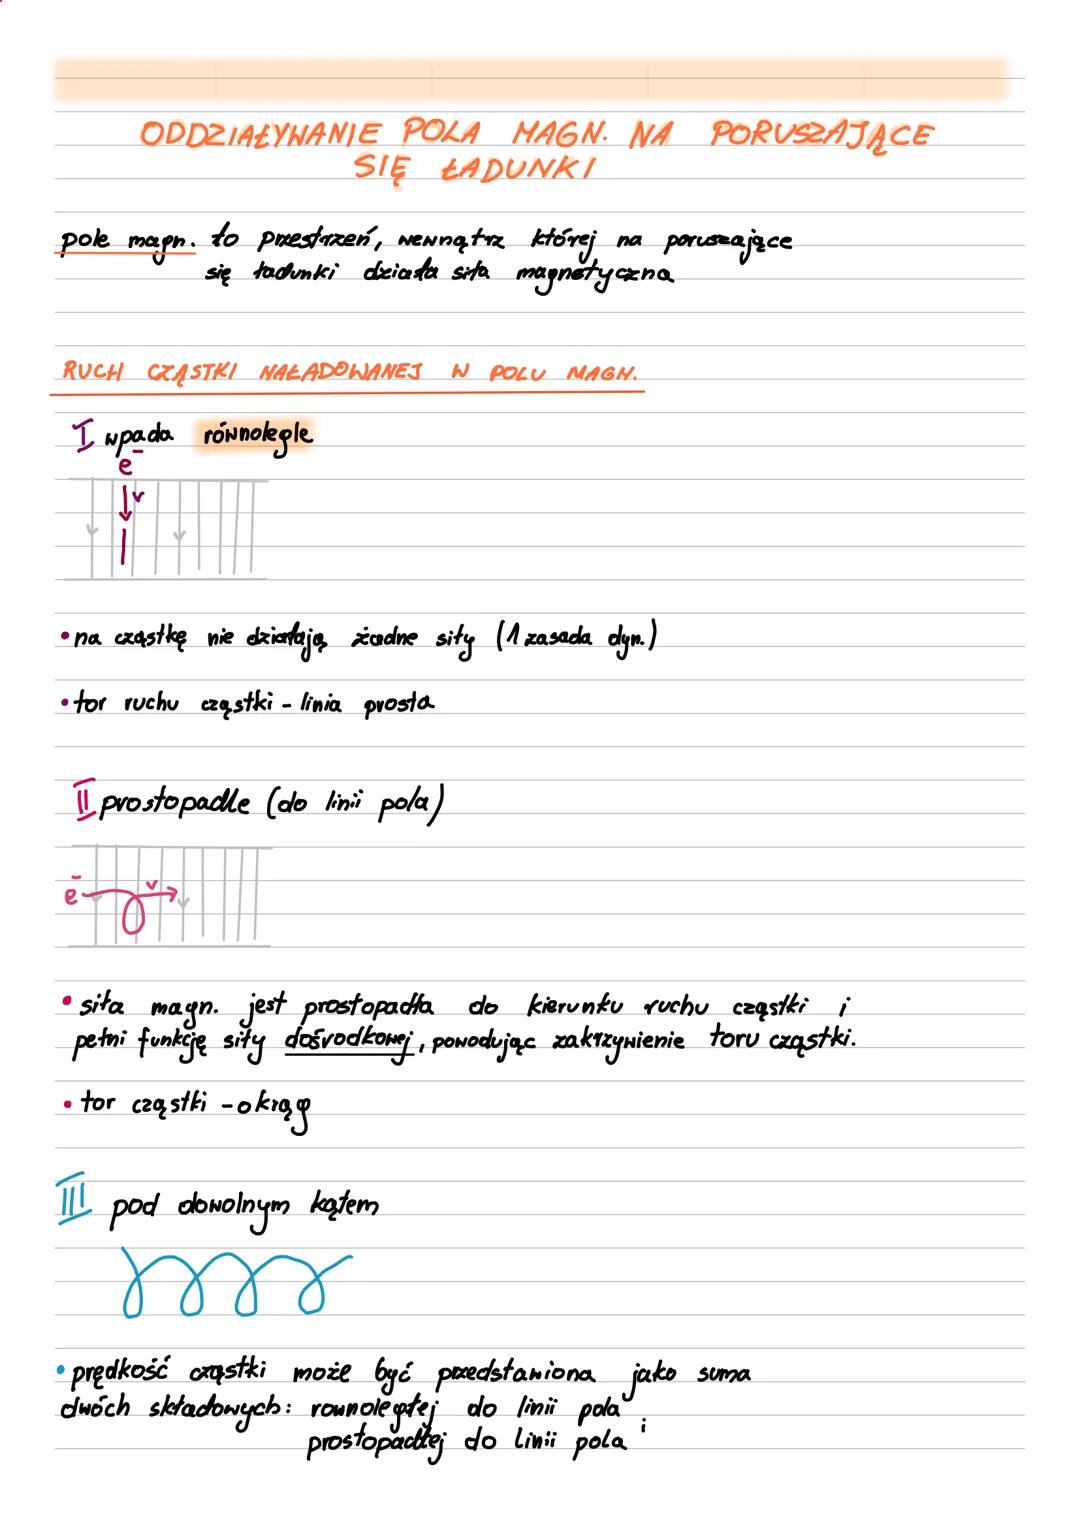 ODDZIAŁYWANIE POLA MAGN. NA PORUSZAJĄCE
SIĘ ŁADUNKI
pole magn. to przestrzeń, wewnątrz której na poruszające
się ładunki działa siła magnetyczna
RUCH CZĄSTKI NAŁADOWANEJ W POLU MAGN.
I wpada równolegle
e⁻
v
• na cząstkę nie działają żadne siły (1 zasada dyn.)
• tor ruchu cząstki - linia prosta
II prostopadle (do linii pola)
e⁻ v
• siła magn. jest prostopadła do kierunku ruchu cząstki i
pełni funkcję siły dośrodkowej, powodując zakrzywienie toru cząstki.
• tor cząstki - okrąg
III pod dowolnym kątem
• prędkość cząstki może być przedstawiona jako suma
dwóch składowych: rownoległej do linii pola i
prostopadłej do linii pola